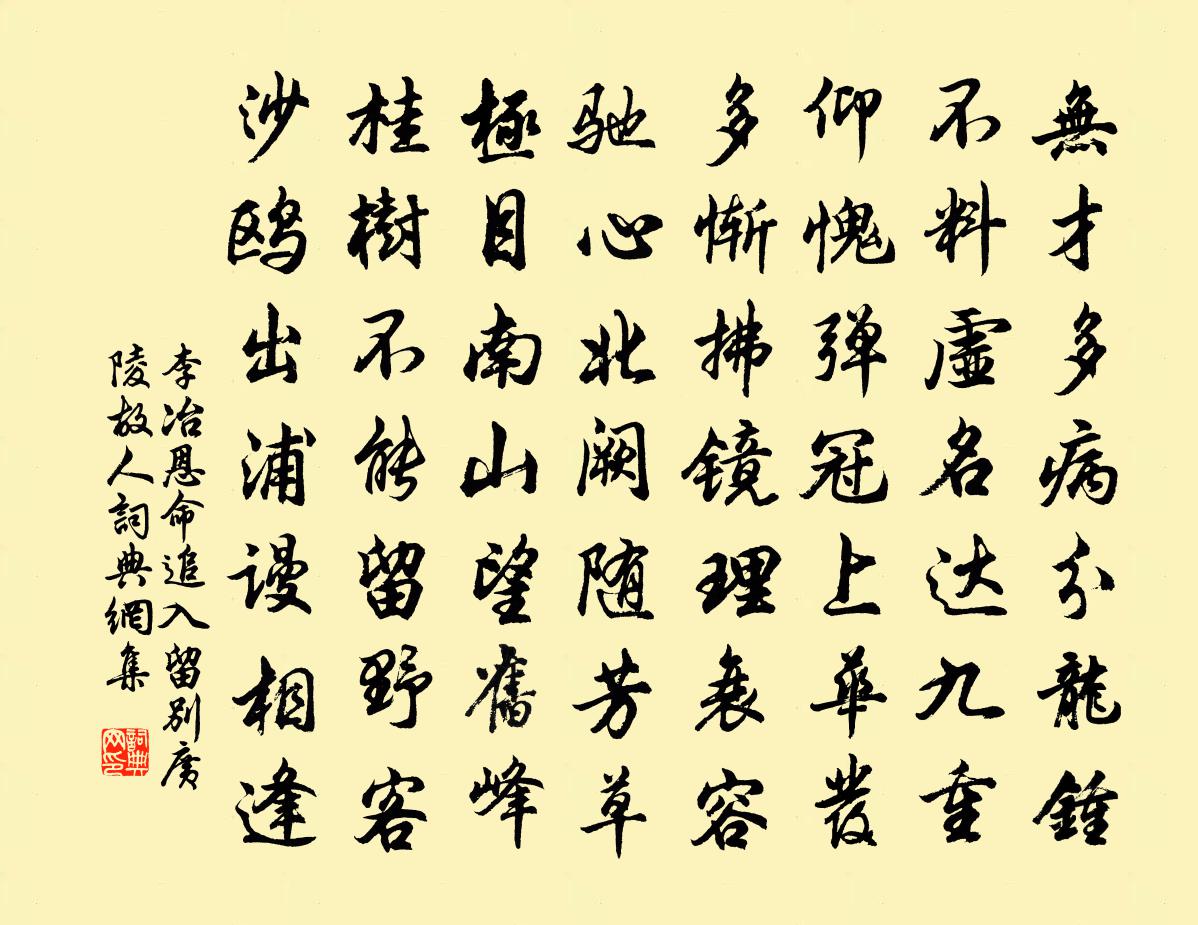 無才多病分龍鍾
不料虛名达九重
仰愧弹冠上華發
多慚拂镜理衰容
驰心北阙随芳草
極目南山望舊峰
桂樹不能留野客
沙鸥出浦谩相逢
李冶恩命追入留别廣
陵故人詞典網集
詞典
网印